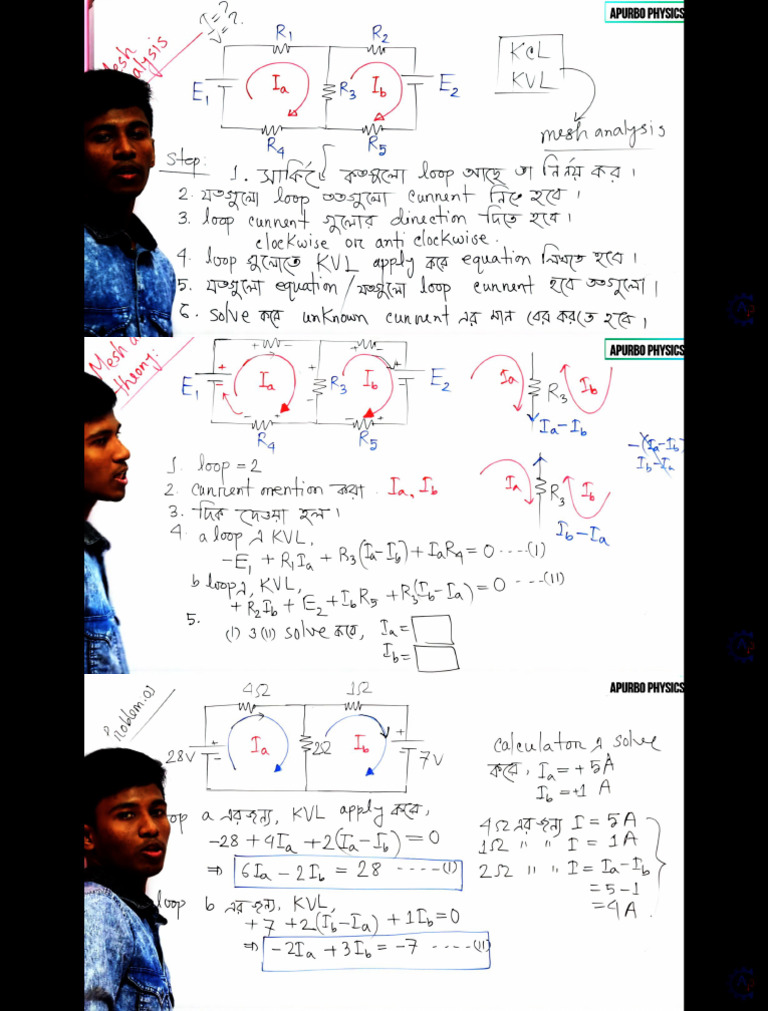 APURBO PHYSICS
I=?
V=?
Mesh
analysis
R1 R2
E1 Ia R3 Ib E2
R4 R5
KCL
KVL
mesh analysis
Step:
1. সার্কিটে কতগুলো loop আছে তা নির্নয় কর।
2. যতগুলো loop ততগুলো current নিতে হবে।
3. loop current গুলোর direction দিতে হবে।
clockwise or anti clockwise.
4. loop গুলোতে KVL apply করে equation লিখতে হবে।
5. যতগুলো equation/যতগুলো loop current হবে ততগুলো।
6. solve করে unknown current এর মান বের করতে হবে।
APURBO PHYSICS
theory:
E1 Ia R3 Ib E2
R4 R5
Ia R3 Ib
Ia-Ib
-(Ia-Ib)
Ib-Ia
Ia R3 Ib
Ib-Ia
1. loop = 2
2. current mention করা. Ia, Ib
3. দিক দেওয়া হল।
4. a loop এ KVL,
-E1 + R1Ia + R3(Ia-Ib) + IaR4 = 0 ----(I)
b loop এ, KVL,
+R2Ib + E2 + IbR5 + R3(Ib-Ia) = 0 ---(II)
5.
(I) ও (II) solve করে, Ia =
Ib =
APURBO PHYSICS
Problem:01
4Ω 1Ω
28V Ia 2Ω Ib 7V
loop a এর জন্য, KVL apply করে,
-28 + 4Ia + 2(Ia-Ib) = 0
⇒ 6Ia - 2Ib = 28 -----(I)
loop b এর জন্য, KVL,
+7 + 2(Ib-Ia) + 1Ib = 0
⇒ -2Ia + 3Ib = -7 -----(II)
calculator এ solve
করে, Ia = +5A
Ib = +1 A
4Ω এর জন্য I = 5A
1Ω " " I = 1A
2Ω " " I = Ia-Ib
= 5-1
= 4A.